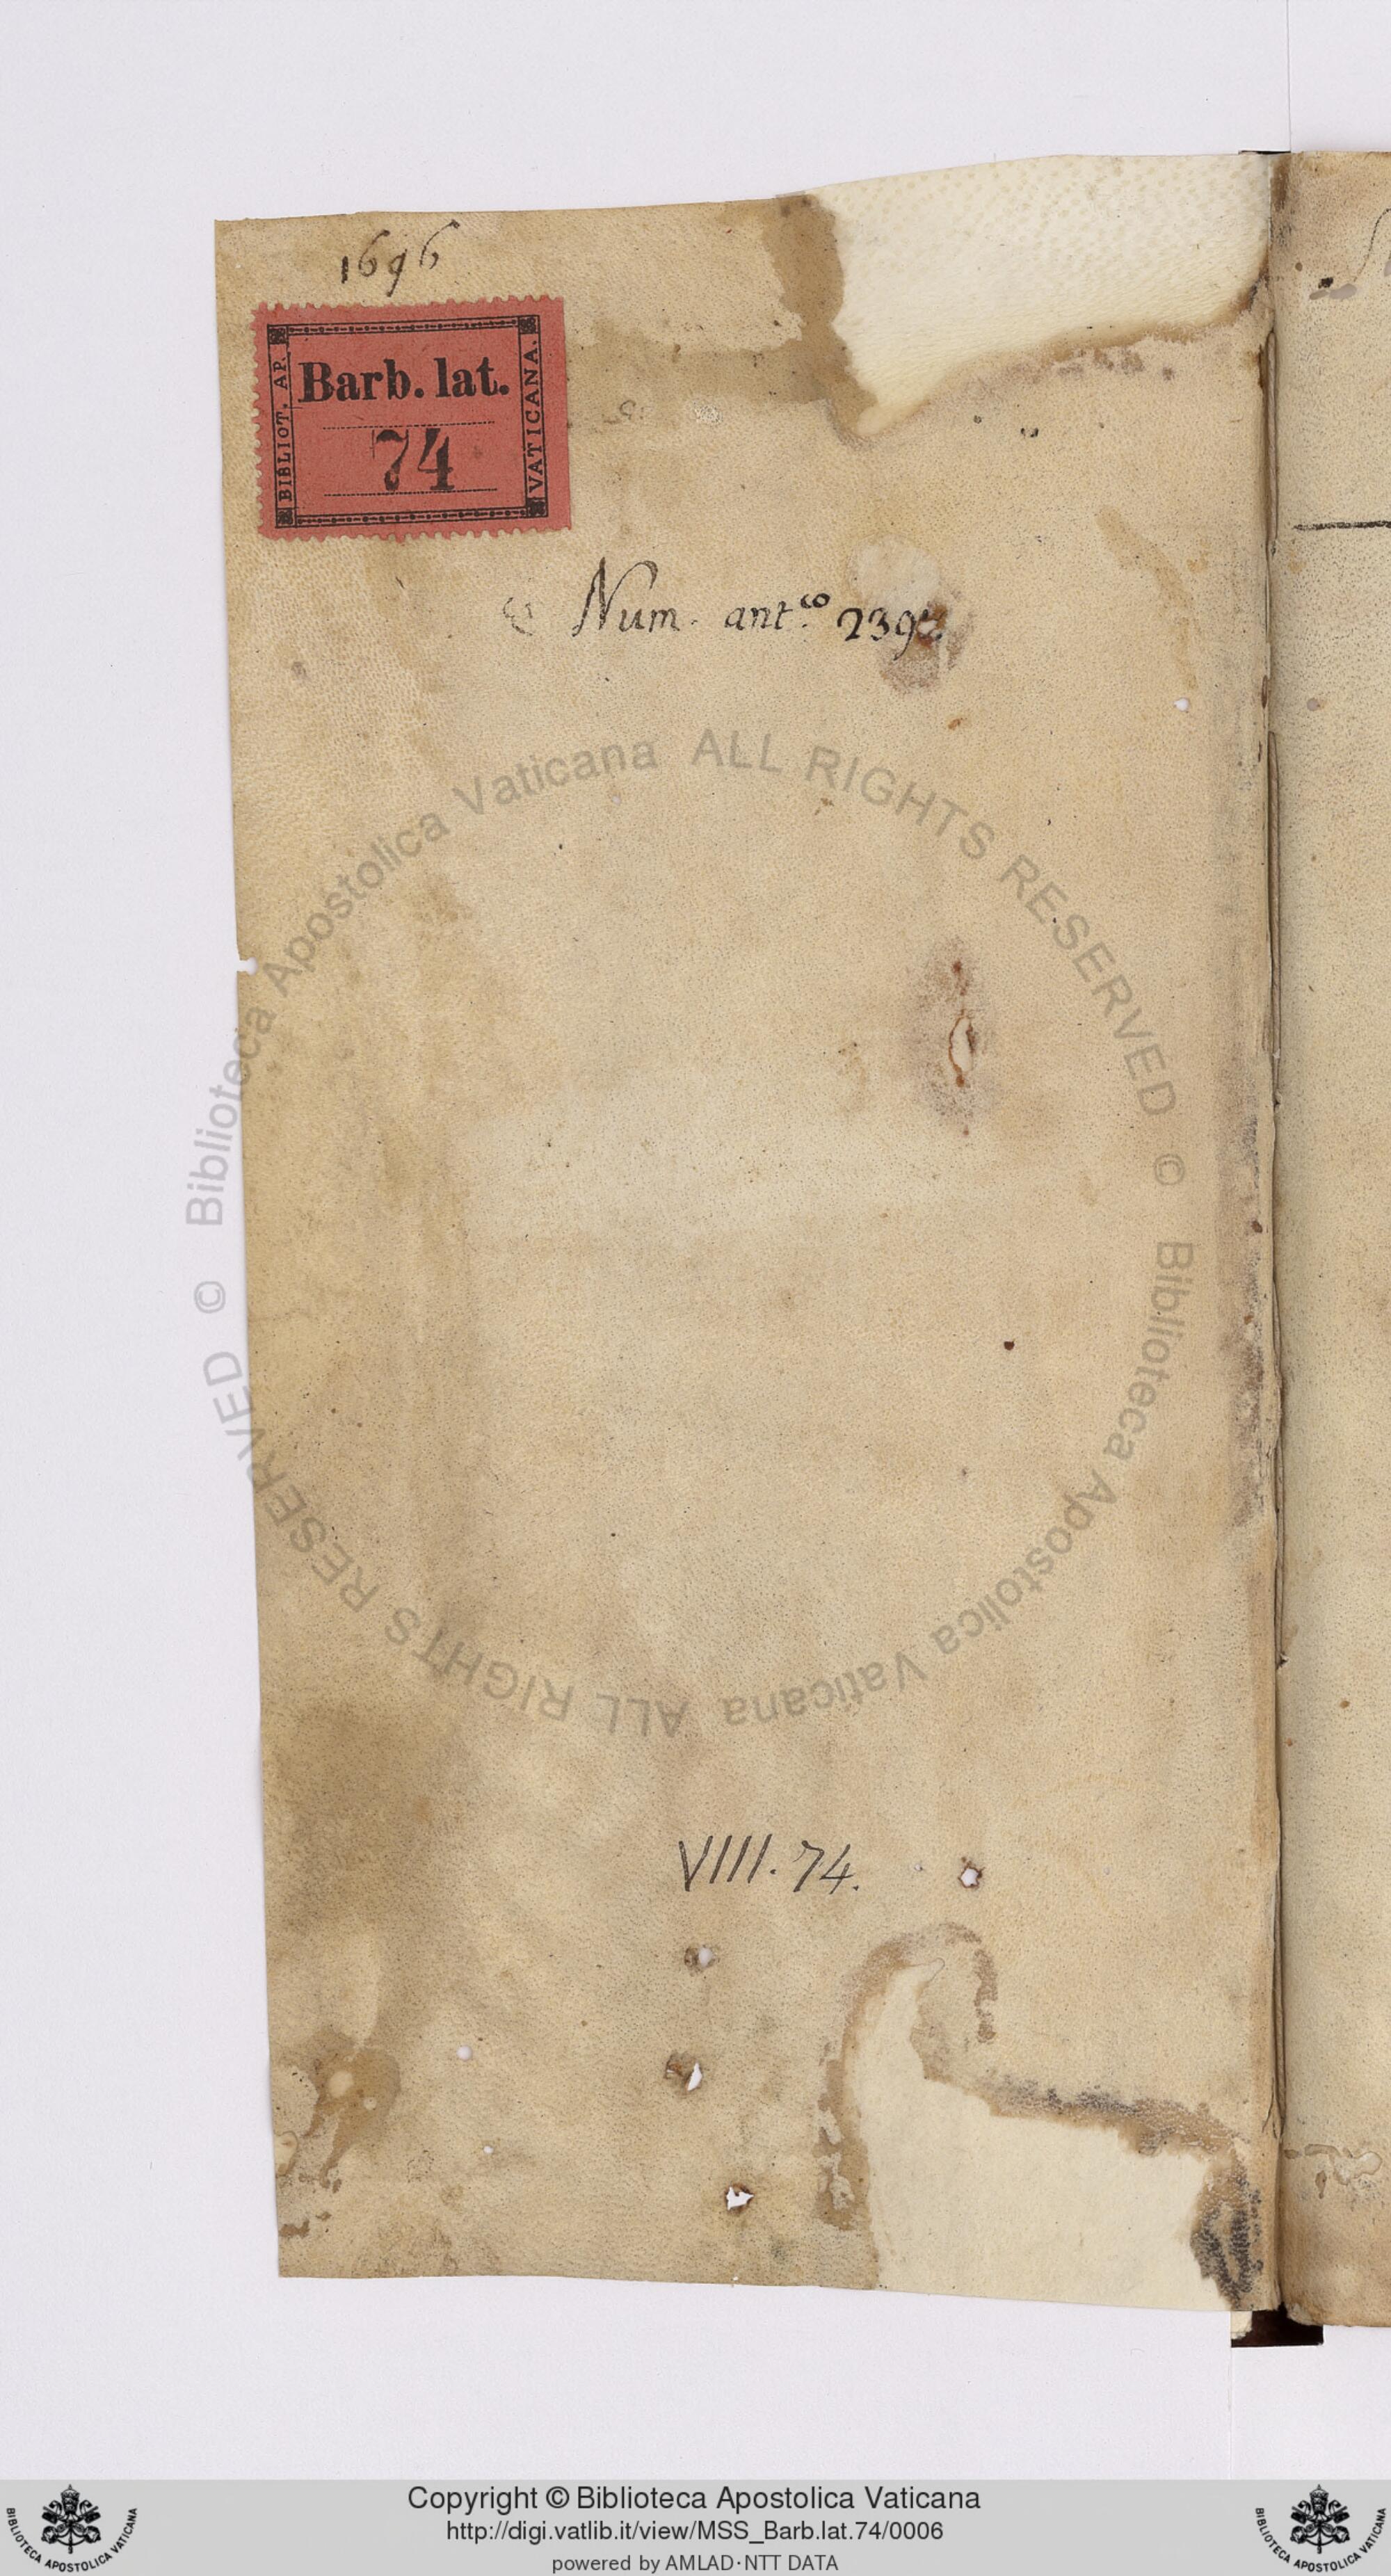 1696
BIBLIOT. AP. VATICANA.
Barb. lat.
74
Num. ant.co
VIII. 74.
© Biblioteca Apostolica Vaticana ALL RIGHTS RESERVED © Biblioteca Apostolica Vaticana ALL RIGHTS RESERVED
Copyright © Biblioteca Apostolica Vaticana
http://digi.vatlib.it/view/MSS_Barb.lat.74/0006
powered by AMLAD·NTT DATA
BIBLIOTECA APOSTOLICA VATICANA
BIBLIOTECA APOSTOLICA VATICANA